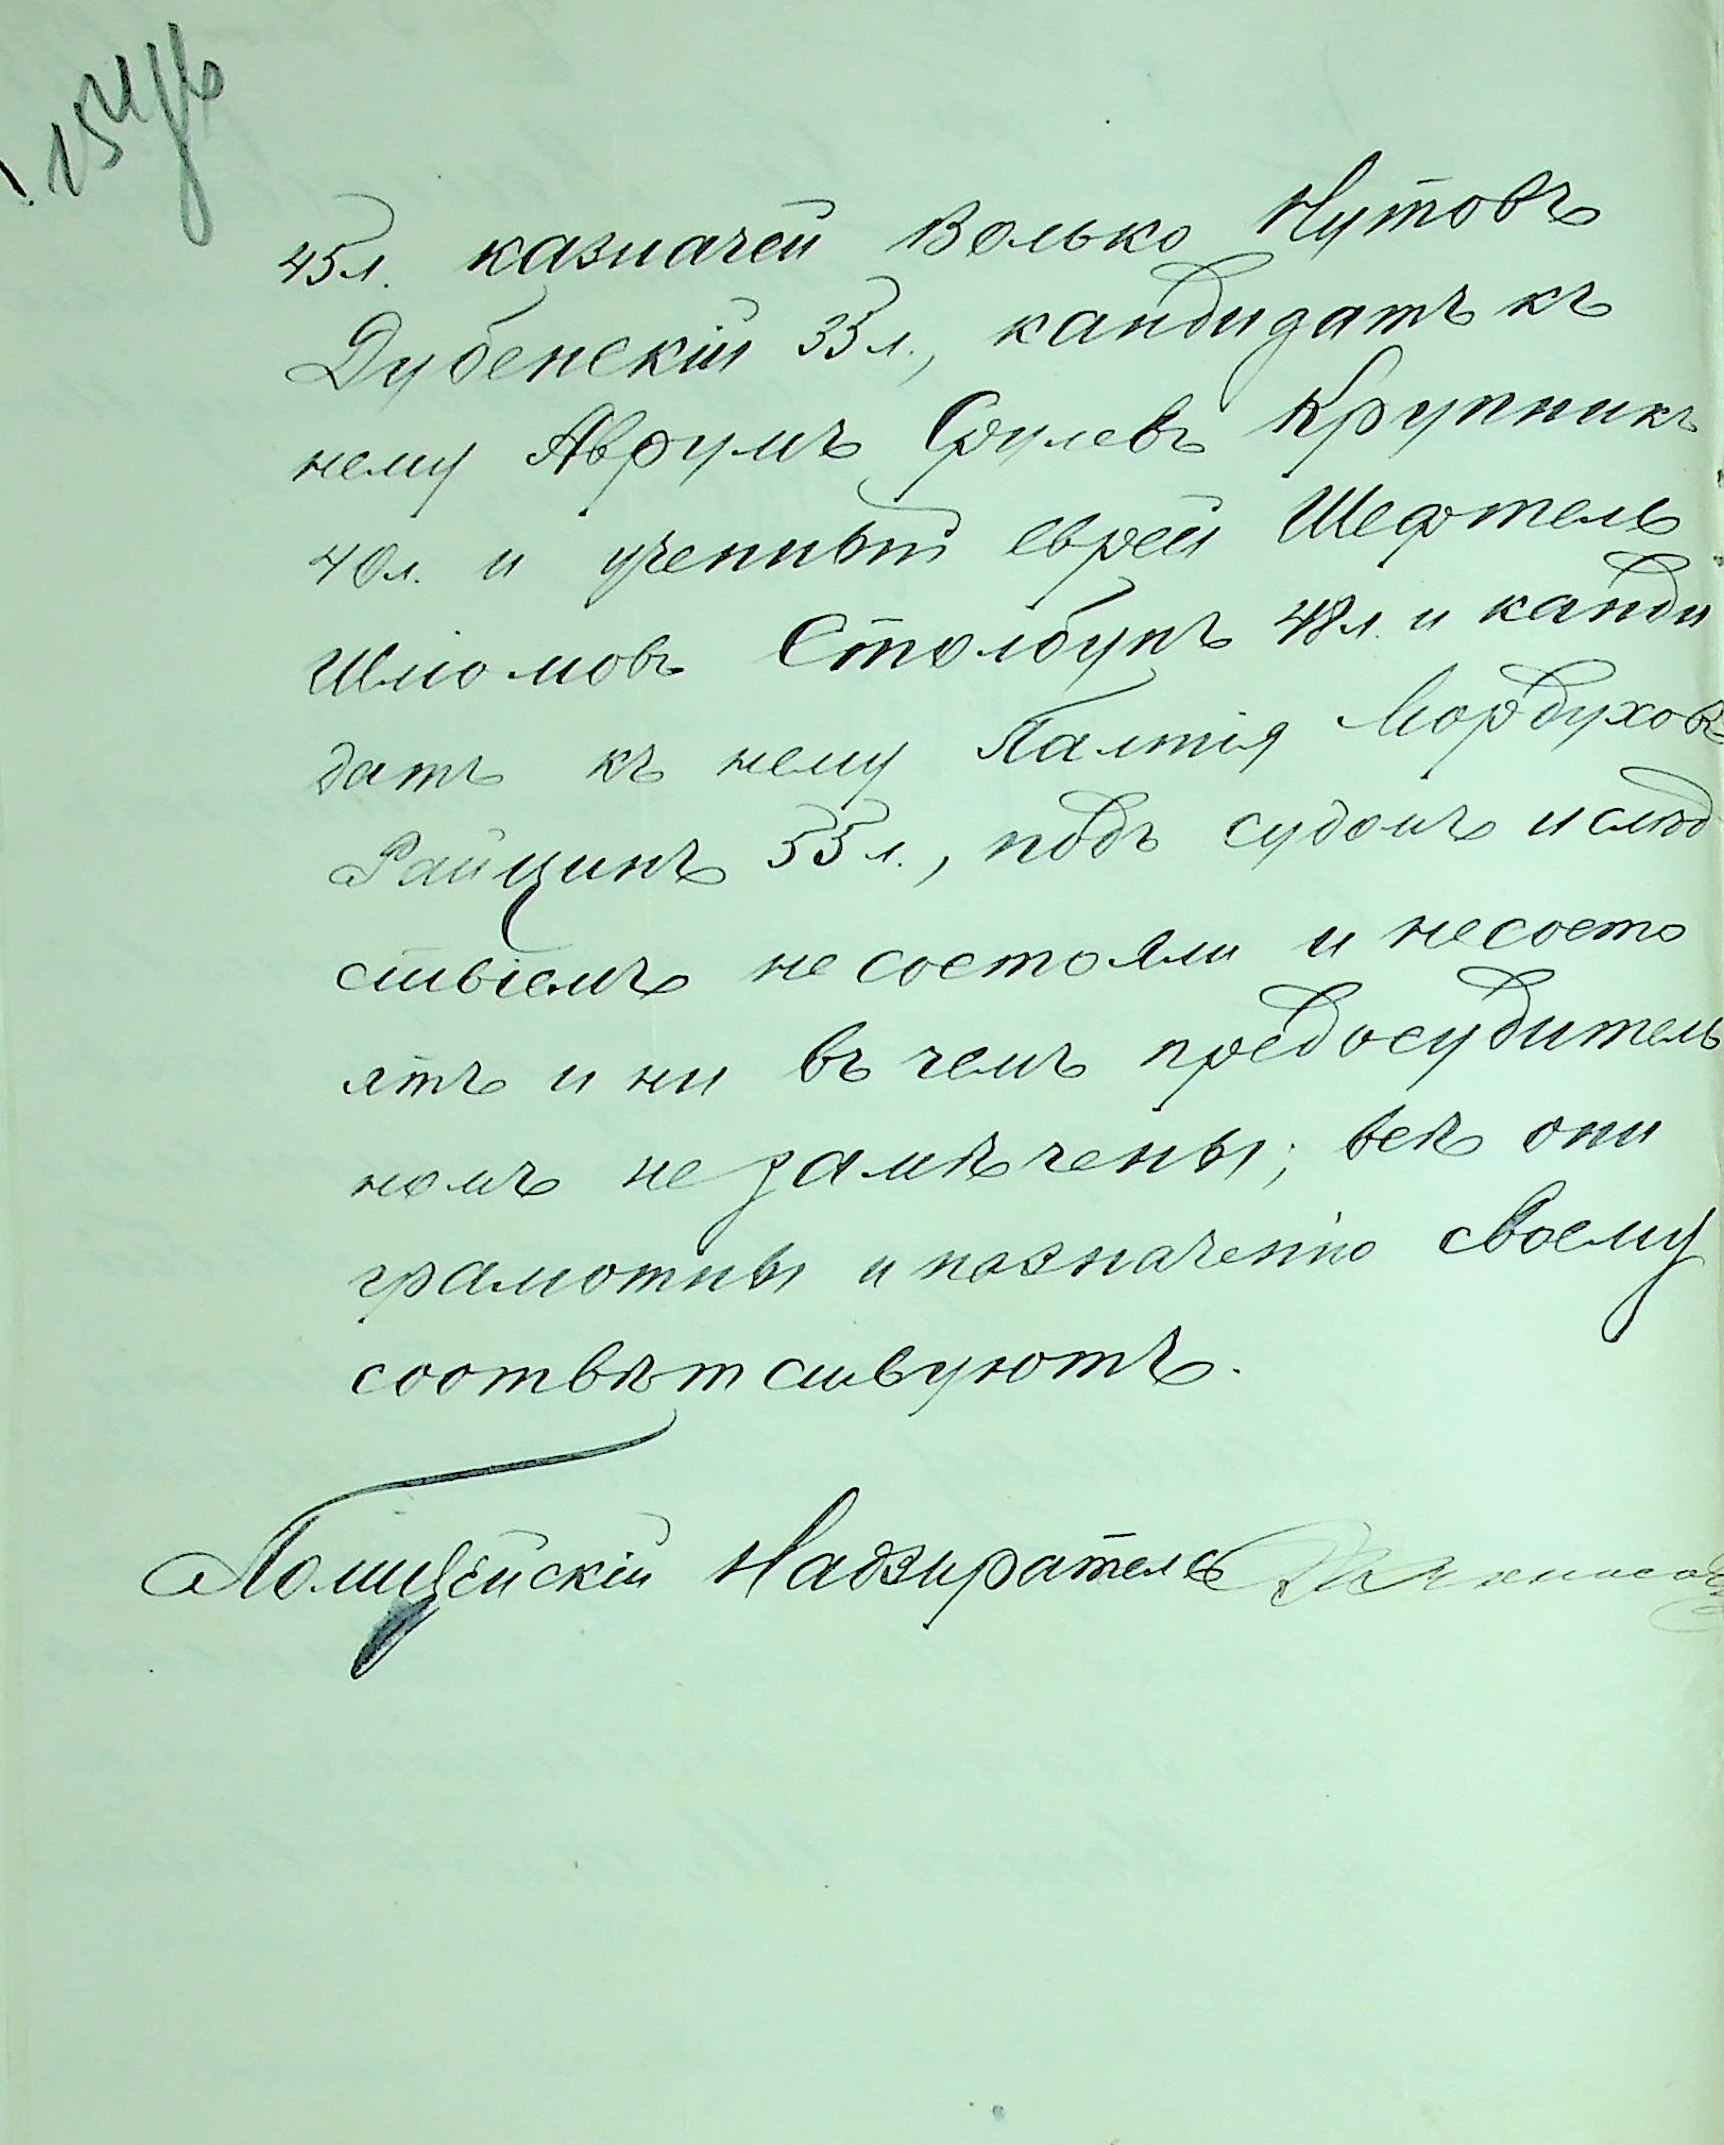 45л. казначей Волько Нутовъ
Дубенскій 35л., кандидатъ къ
нему Аврумъ Срулевъ Крупникъ
40л. и ученный еврей Шефтель
Шліомовъ Столбунъ 48л. и канди
датъ къ нему Палтія Мордуховъ
Райцинъ 55л., подъ судомъ и слѣд
ствіемъ не состояли и несосто
ятъ и ни въ чемъ предосудитель
номъ не замѣчены; всѣ они
грамотны и назначенію своему
соотвѣтствуютъ.
Полицейскій Надзиратель